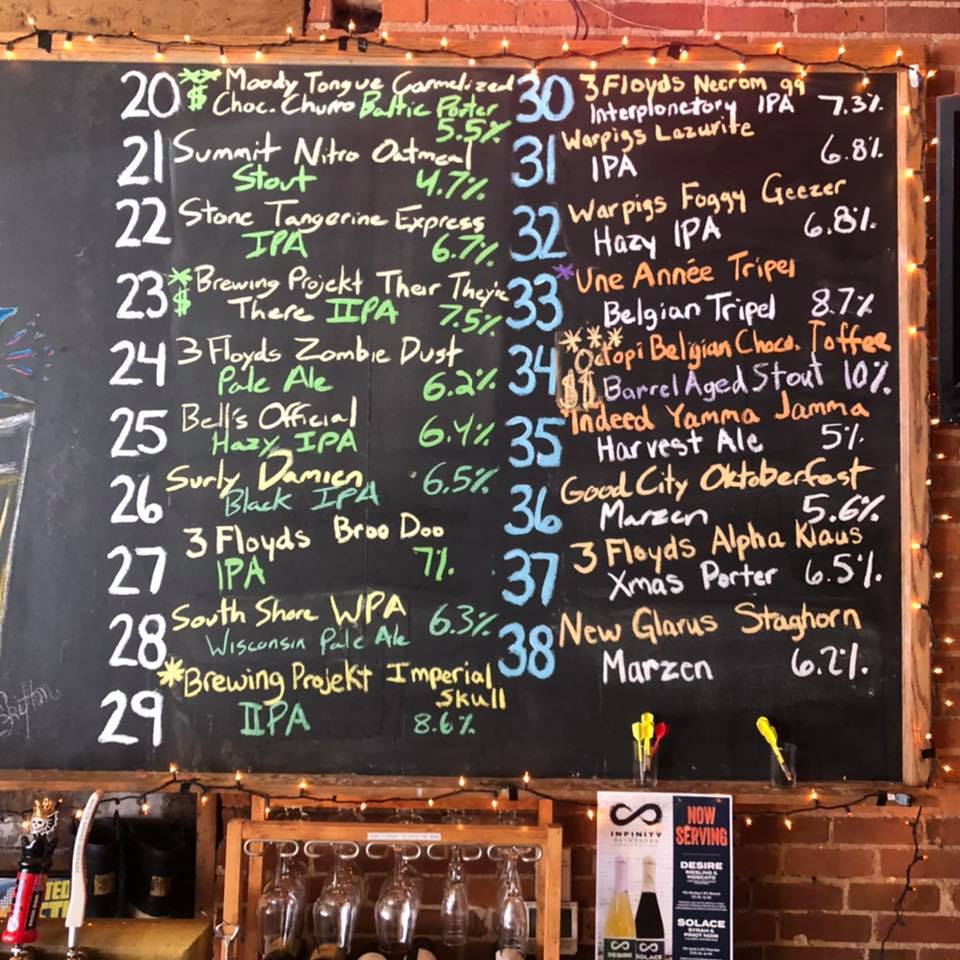 20 ** Moody Tongue Carmelized
$ Choc. Churro Baltic Porter
5.5%
21 Summit Nitro Oatmeal
Stout 4.7%
22 Stone Tangerine Express
IPA 6.7%
23 * Brewing Projekt Their They're
$ There IIPA 7.5%
24 3 Floyds Zombie Dust
Pale Ale 6.2%
25 Bell's Official
Hazy IPA 6.4%
26 Surly Damien
Black IPA 6.5%
27 3 Floyds Broo Doo
IPA 7%
28 South Shore WPA
Wisconsin Pale Ale 6.3%
29 *Brewing Projekt Imperial
Skull
IIPA 8.6%
30 3 Floyds Necrom 99
Interplonetory IPA 7.3%
31 Warpigs Lazurite
IPA 6.8%
32 Warpigs Foggy Geezer
Hazy IPA 6.8%
33 * Une Année Tripel
Belgian Tripel 8.7%
34 *** Octopi Belgian Choco. Toffee
$$ Barrel Aged Stout 10%
35 Indeed Yamma Jamma
Harvest Ale 5%
36 Good City Oktoberfest
Marzen 5.6%
37 3 Floyds Alpha Klaus
Xmas Porter 6.5%
38 New Glarus Staghorn
Marzen 6.2%
INFINITY
BEVERAGES
NOW
SERVING
DESIRE
RIESLING &
MOSCATO
SOLACE
SYRAH &
PINOT NOIR
DESIRE
SOLACE